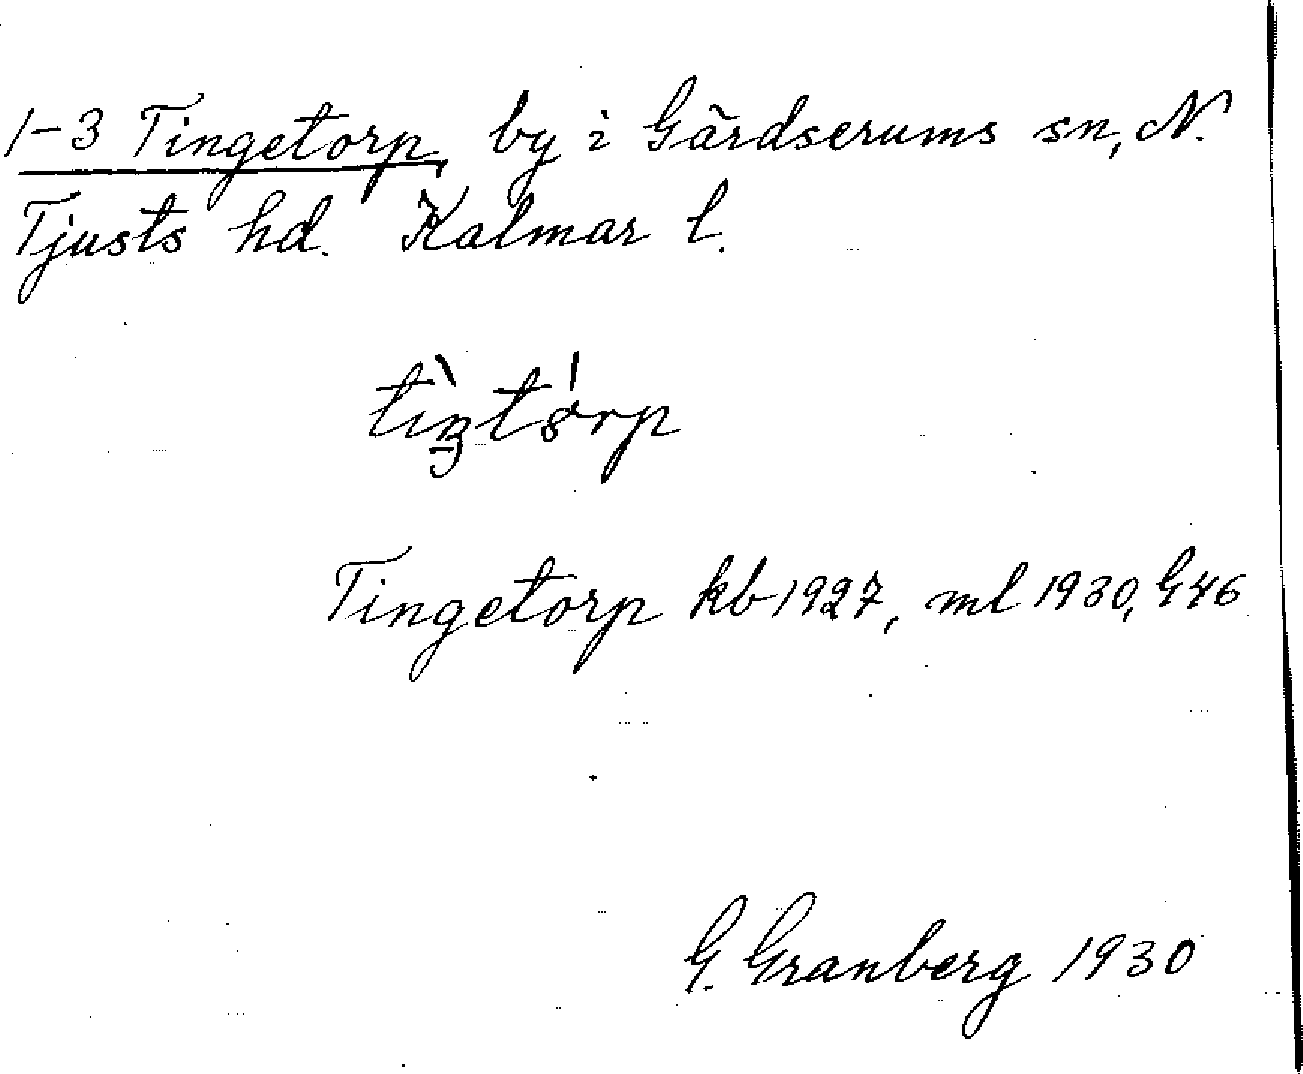 1-3 Tingetorp, by i Gärdserums sn, N.
Tjusts hd. Kalmar l.
Tingetorp kb 1927, ml 1930, G46
G. Granberg 1930